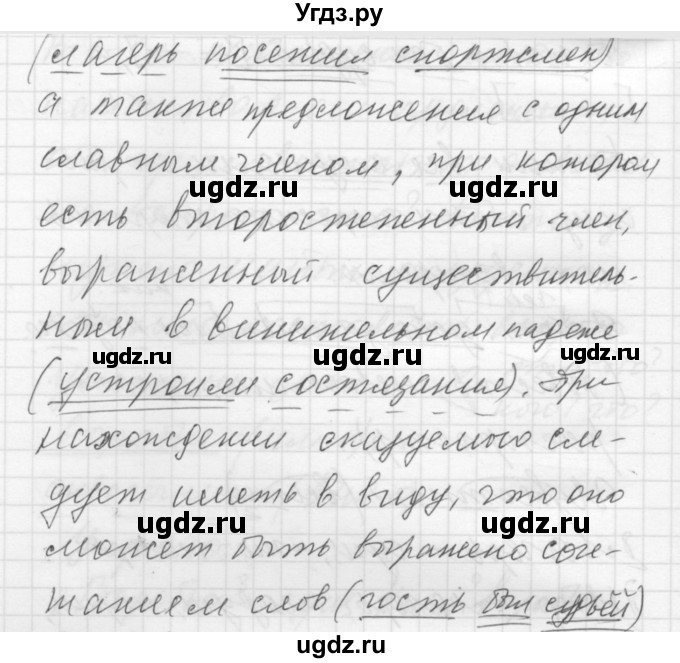 Угдз.ру
(лагерь посетил спортсмен)
а также предложения с одним
главным членом, при котором
ugdz.ru ugdz.ru
есть второстепенный член,
выраженный существитель-
ным в винительном падеже
ugdz.ru ugdz.ru ugdz.ru
(устроили состязания). При
нахождении сказуемого сле-
дует иметь в виду, что оно
ugdz.ru ugdz.ru
может быть выражено соче-
танием слов (гость был судьёй)
ugdz.ru